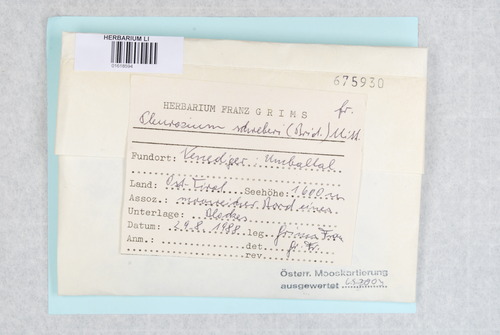 HERBARIUM LI
675930
HERBARIUM FRANZ GRIMS fr.
Pleurozium schreberi (Brid.) Mitt.
Fundort: Venediger: Umbaltal
Land: Ost-Tirol Seehöhe: 1600 m
Assoz.: Rand eines
Unterlage: Blockes
Datum: 29.8.1988 leg. Grims Franz
Anm.: det. Gr. Fr.
rev.
Österr. Mooskartierung
ausgewertet